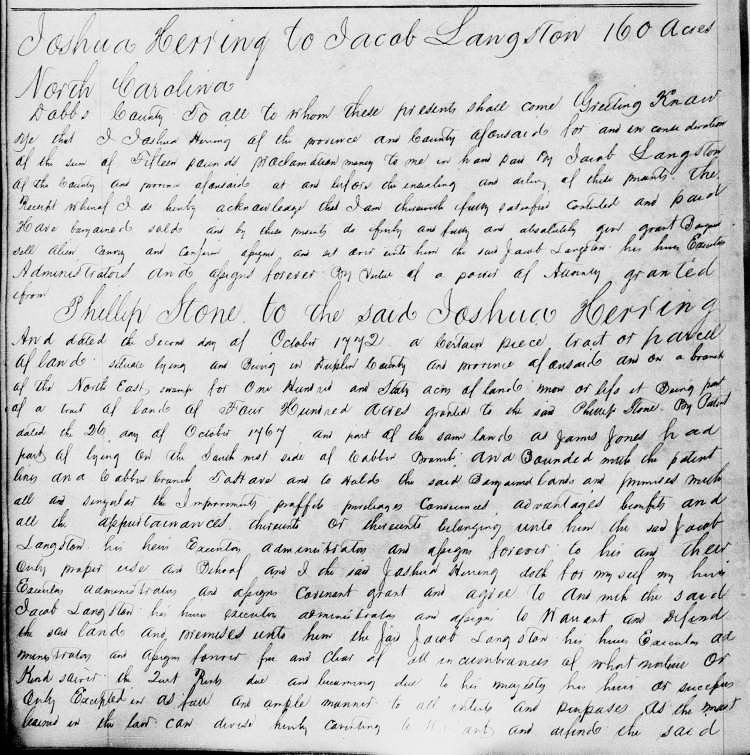 Joshua Herring to Jacob Langston 160 Acres
North Carolina
Dobbs County To all to whom these presents shall come Greeting Know
Ye that I Joshua Herring of the province and County aforesaid for and in consideration
of the sum of Fifteen pounds proclamation money to me in hand paid By Jacob Langston
of the County and province aforesaid at and before the ensealing and delivy of these presents the
Receipt whereof I do hereby acknowledge that I am therewith fully satisfied contented and paid
Have bargained sold and by these presents do freely and fully and absolutely give grant Bargain
sell alien convey and confirm assigns and set over unto him the said Jacob Langston his heirs Executors
Administrators and assigns forever By Virtue of a power of Attorney granted
from
Phillip Stone to the said Joshua Herring
And dated the Second day of October 1772 a Certain piece tract or parcell
of land situate lying and Being in Duplin County and province aforesaid and on a branch
of the North East swamp for One Hundred and Sixty acres of land more or less it Being part
of a tract of land of Four Hundred Acres granted to the said Phillip Stone By Patent
dated the 26 day of October 1767 and part of the same land as James Jones had
part of lying on the South west side of Cabbin Branch and Bounded with the patent
lines and Cabbin branch To Have and to Hold the said Bargained lands and premises with
all and singular the Improvments proffits priviledges Conveniences advantages benefits and
all the appurtainances thereunto or thereunto belonging unto him the said Jacob
Langston his heirs Executors administrators and assigns forever to his and their
Only proper use and Behoof and I the said Joshua Herring doth for my self my heirs
Executors administrators and assigns Covenant grant and agree to and with the said
Jacob Langston his heirs executors administrators and assigns to Warrant and Defend
the said land and premises unto him the said Jacob Langston his heirs Executors ad
ministrators and assigns forever free and Clear of all incumbrances of what nature Or
Kind soever the Quit Rents due and becoming due to his majesty his heirs or successors
Only Excepted in as full and ample manner to all intents and purposes as the most
learned in the law can devise hereby covinting to and defind the said